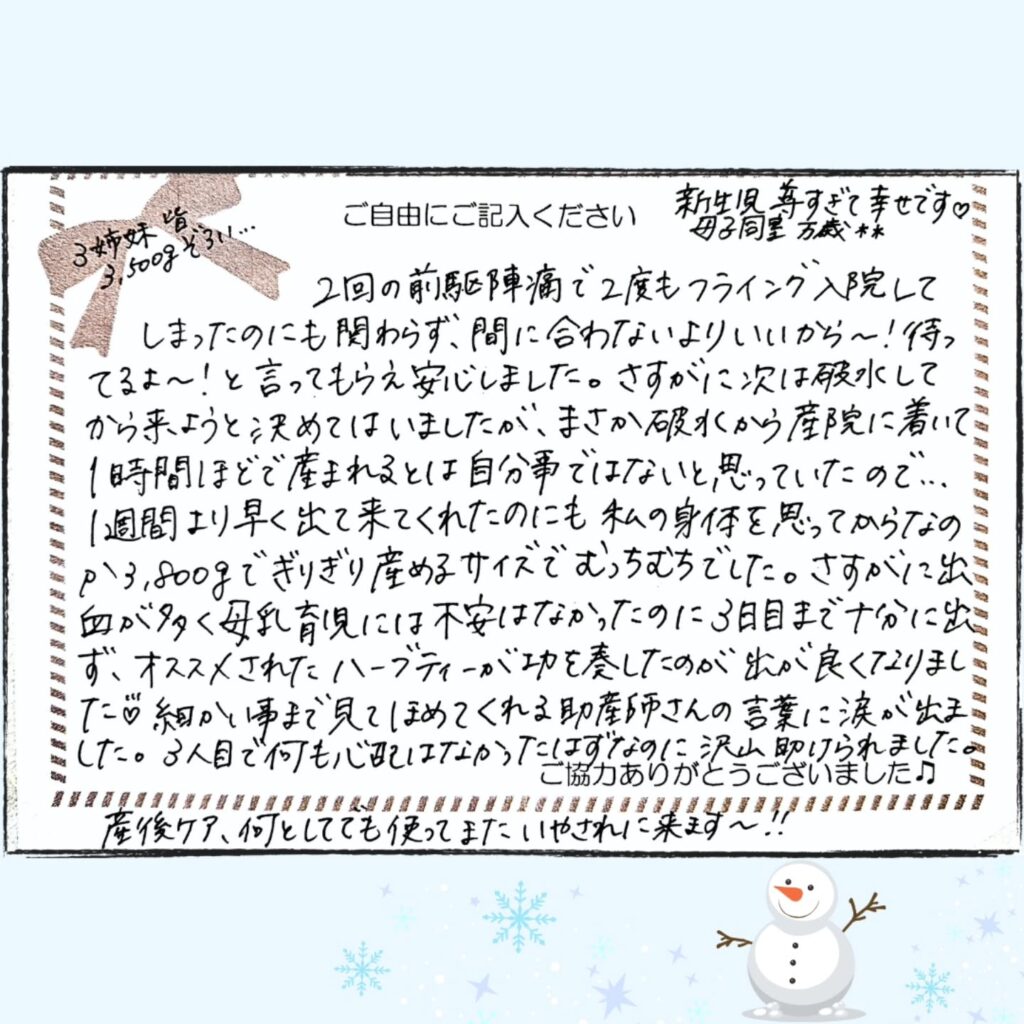 3姉妹 皆
3,500gぞろい…
ご自由にご記入ください
新生児 尊すぎて幸せです♡
母子同室 万歳**
2回の前駆陣痛で2度もフライング入院して
しまったのにも関わらず、間に合わないよりいいから〜!待っ
てるよ〜!と言ってもらえ安心しました。さすがに次は破水して
から来ようと決めてはいましたが、まさか破水から産院に着いて
1時間ほどで産まれるとは自分事ではないと思っていたので…
1週間より早く出て来てくれたのにも私の身体を思ってからなの
か3,800gでぎりぎり産めるサイズでむっちむちでした。さすがに出
血が多く母乳育児には不安はなかったのに3日目まで十分に出
ず、オススメされたハーブティーが功を奏したのか出が良くなりまし
た♡細かい事まで見てほめてくれる助産師さんの言葉に涙が出ま
した。3人目で何も心配はなかったはずなのに沢山助けられました。
ご協力ありがとうございました♫
産後ケア、何としてでも使ってまたいやされに来ます〜!!